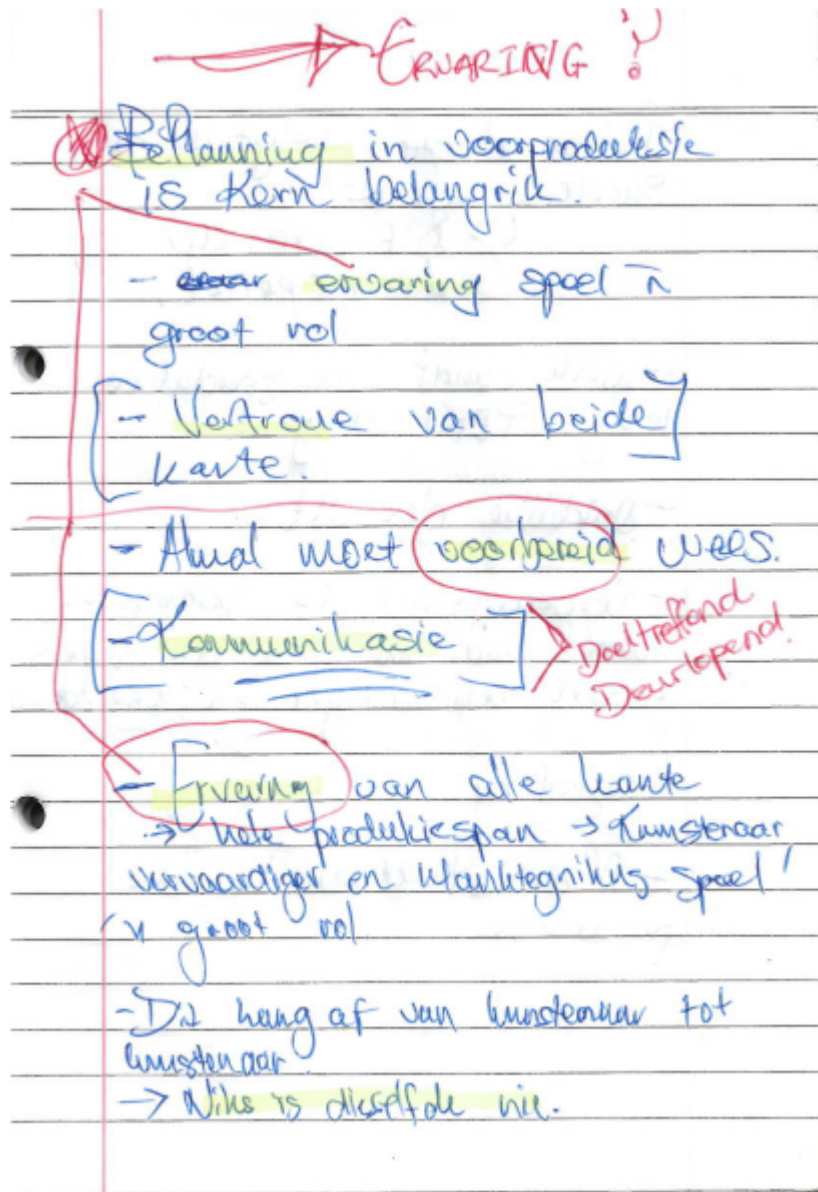 → ERVARING?
Beplanning in voorproduksie
is kern belangrik.
- ervaring speel 'n
groot rol
- Vertroue van beide
kante.
- Almal moet voorbereid wees.
- Kommunikasie
Doeltreffend
Deurlopend!
- Ervaring van alle kante
→ hele produksiespan → Kunstenaar
vervaardiger en klanktegnikus speel
'n groot rol
- Dit hang af van kunstenaar tot
kunstenaar.
→ Niks is dieselfde nie.